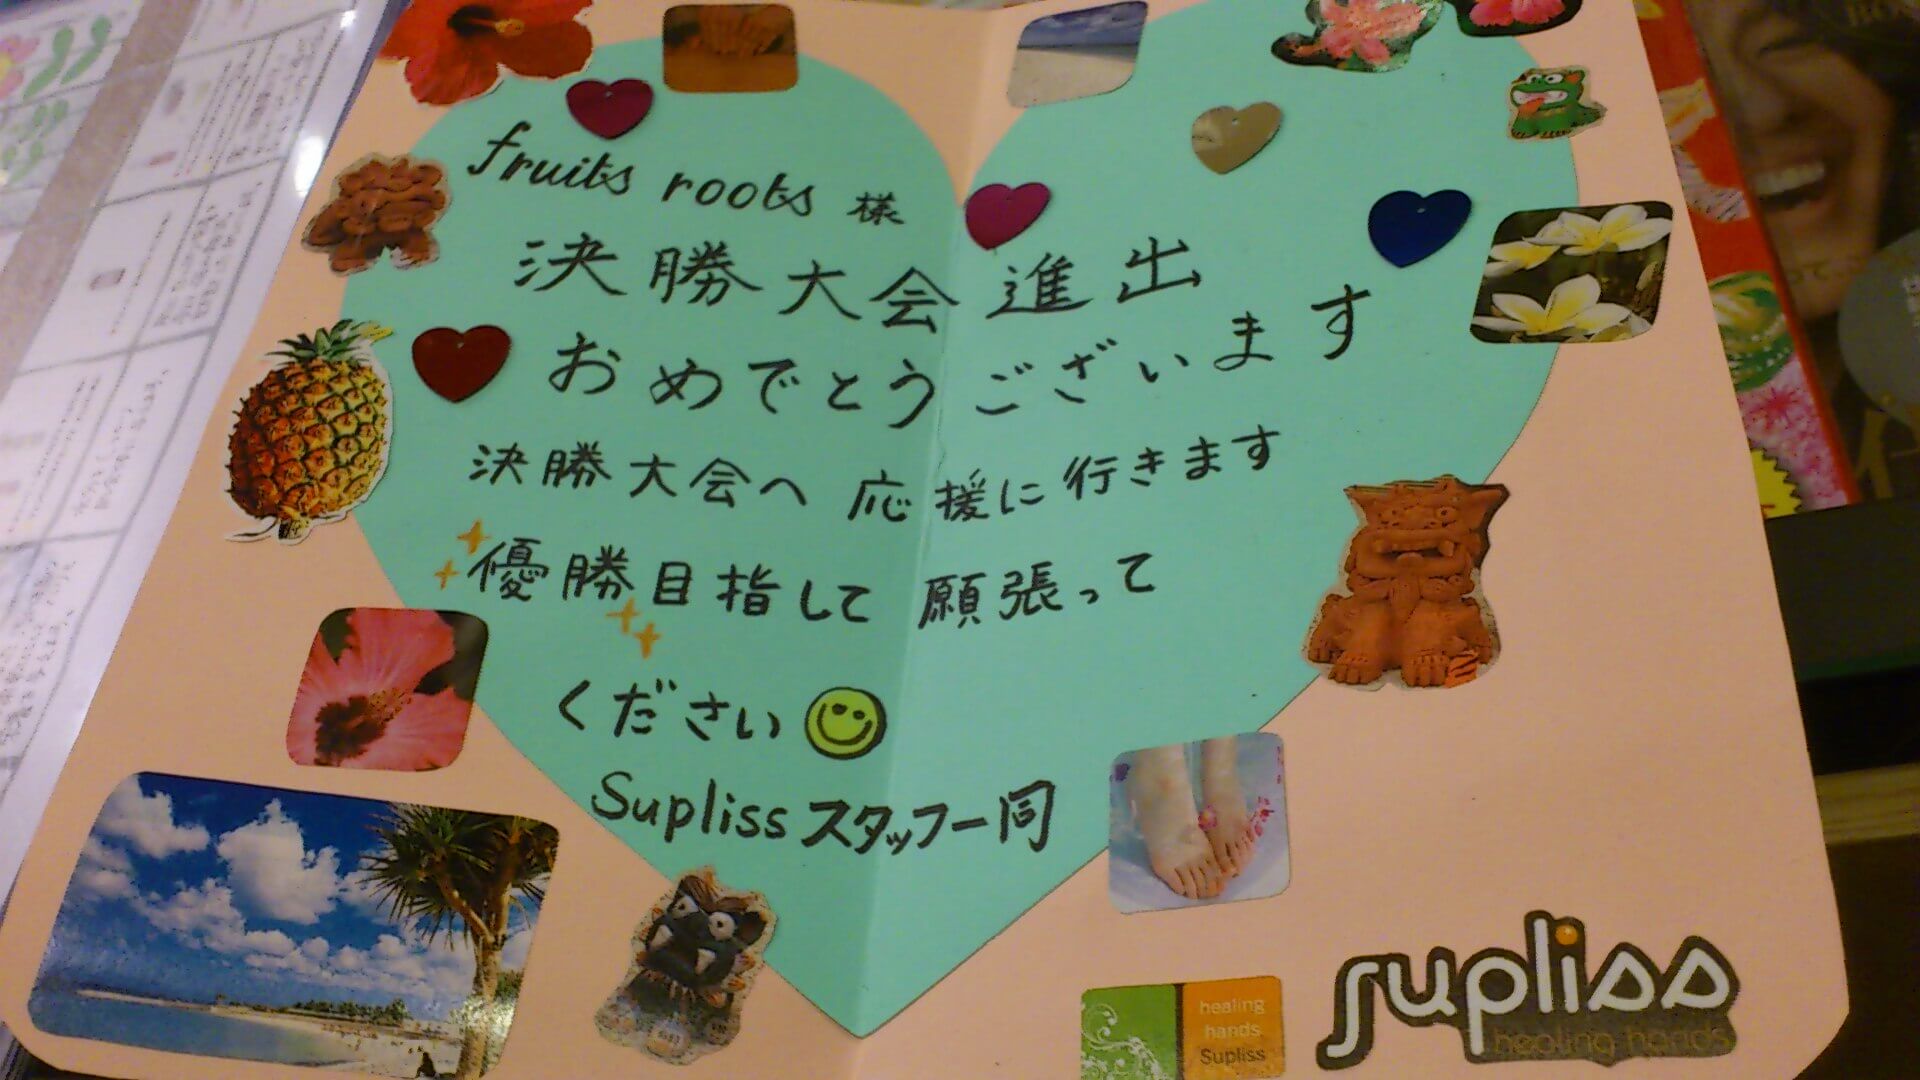 fruits roots 様
決勝大会進出
おめでとうございます
決勝大会へ応援に行きます
優勝目指して願張って
ください
Suplissスタッフ一同
healing
hands
Supliss
supliss
healing hands